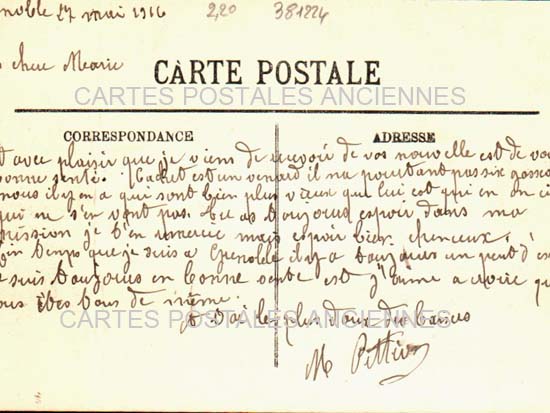 noble 27 mai 1916 2,20 381224
chere Marie
CARTE POSTALE
CARTES POSTALES ANCIENNES
CORRESPONDANCE ADRESSE
avec plaisir que je viens de recevoir de vos nouvelle est de vo
bonne senté. est un il na pourtant pas six gosses
nous il y en a qui sont bien plus vieux que lui est qui en on ci
qui ne s'en vont pas. tu as toujours espoir dans ma
mission je t'en mercie mais espoir bien
temps que je suis a Grenoble il y a toujours un peut d'es
suis toujours en bonne sente est j'aime a croire qu
ous êtes tous de même.
CARTES POSTALES ANCIENNES
le plus doux des baisers
M